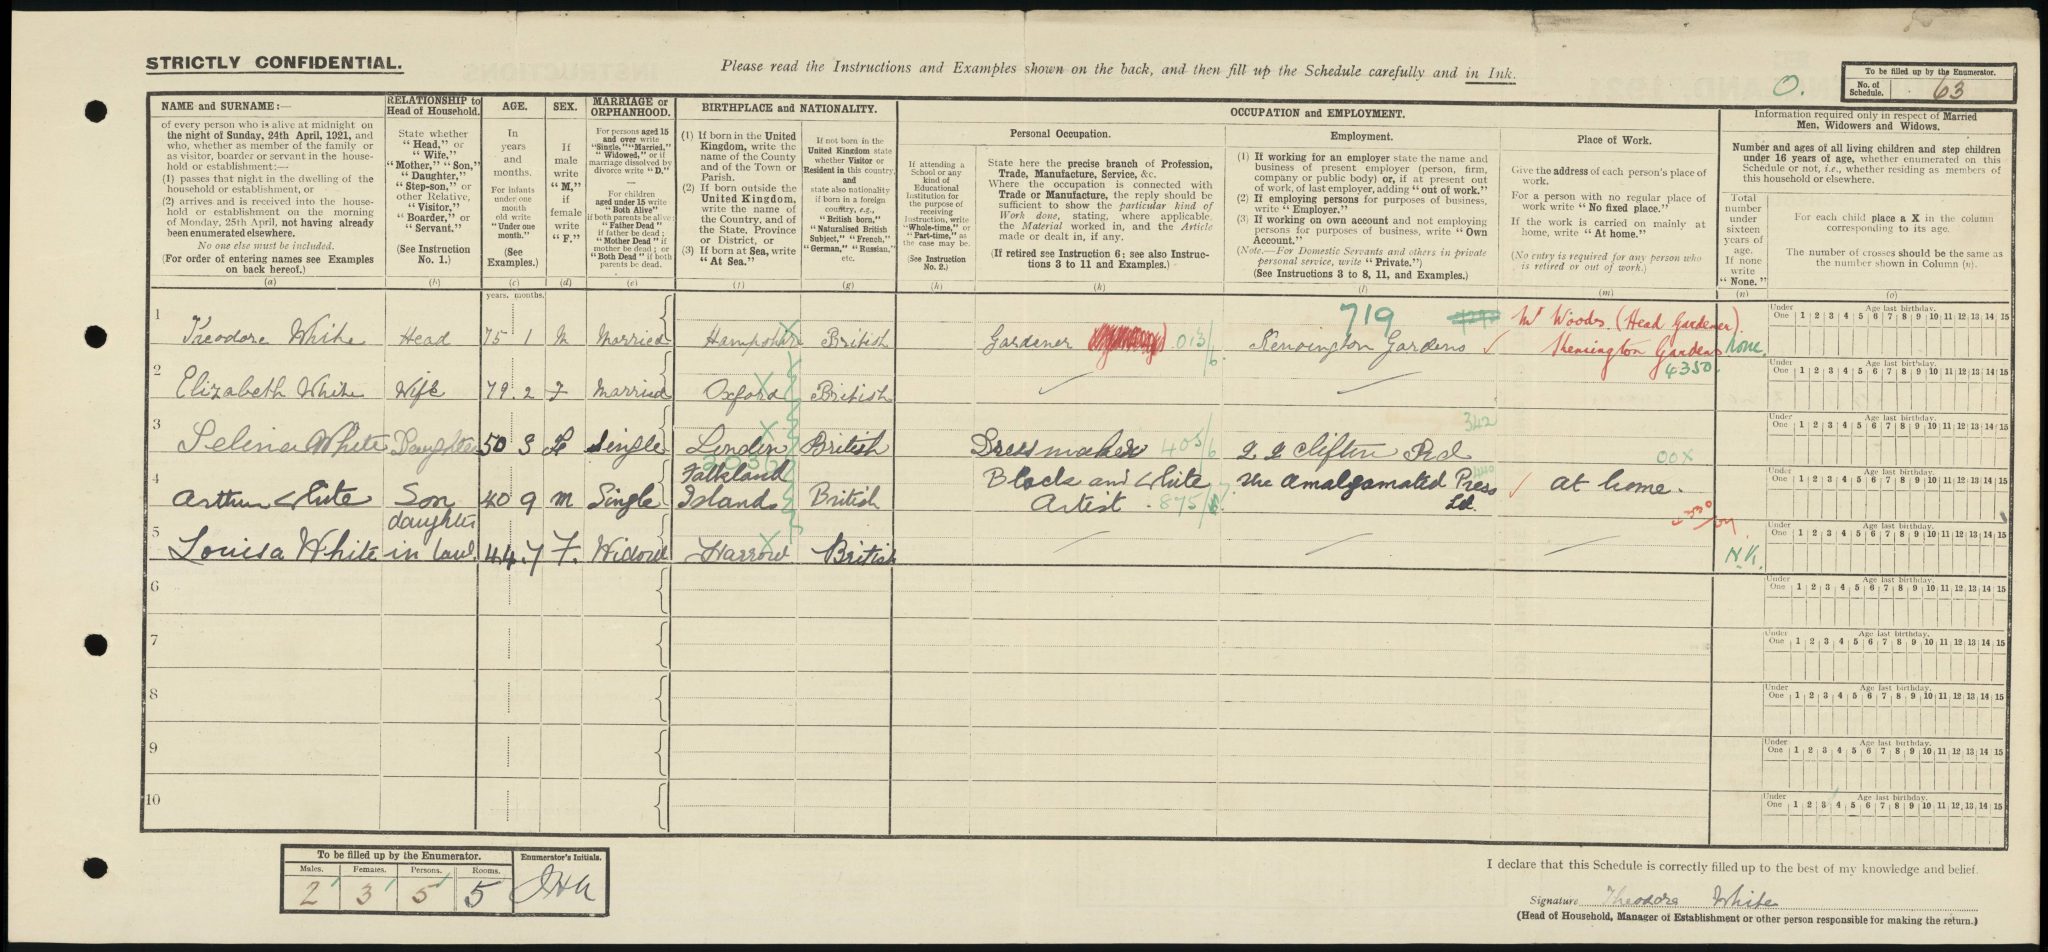 STRICTLY CONFIDENTIAL.
Please read the Instructions and Examples shown on the back, and then fill up the Schedule carefully and in Ink.
O.
To be filled up by the Enumerator.
No. of Schedule. 63
NAME and SURNAME:—
of every person who is alive at midnight on
the night of Sunday, 24th April, 1921, and
who, whether as member of the family or
as visitor, boarder or servant in the house-
hold or establishment:—
(1) passes that night in the dwelling of the
household or establishment, or
(2) arrives and is received into the house-
hold or establishment on the morning
of Monday, 25th April, not having already
been enumerated elsewhere.
No one else must be included.
(For order of entering names see Examples
on back hereof.)
(a)
RELATIONSHIP to
Head of Household.
State whether
"Head," or
"Wife,"
"Mother," "Son,"
"Daughter,"
"Step-son," or
other Relative,
"Visitor,"
"Boarder," or
"Servant."
(See Instruction
No. 1.)
(b)
AGE.
In
years
and
months.
For infants
under one
month
old write
"Under one
month."
(See
Examples.)
(c)
years. months.
SEX.
If
male
write
"M,"
if
female
write
"F."
(d)
MARRIAGE or
ORPHANHOOD.
For persons aged 15
and over write
"Single," "Married,"
"Widowed," or if
marriage dissolved by
divorce write "D."
—
For children
aged under 15 write
"Both Alive"
if both parents be alive;
"Father Dead"
if father be dead;
"Mother Dead" if
mother be dead; or
"Both Dead" if both
parents be dead.
(e)
BIRTHPLACE and NATIONALITY.
(1) If born in the United
Kingdom, write the
name of the County
and of the Town or
Parish.
(2) If born outside the
United Kingdom,
write the name of
the Country, and of
the State, Province
or District, or
(3) If born at Sea, write
"At Sea."
(f)
If not born in the
United Kingdom state
whether Visitor or
Resident in this country,
and
state also nationality
if born in a foreign
country, e.g.,
"British born,"
"Naturalised British
Subject," "French,"
"German," "Russian,"
etc.
(g)
OCCUPATION and EMPLOYMENT.
If attending a
School or any
kind of
Educational
Institution for
the purpose of
receiving
Instruction, write
"Whole-time," or
"Part-time," as
the case may be.
(See Instruction
No. 2.)
(h)
Personal Occupation.
State here the precise branch of Profession,
Trade, Manufacture, Service, &c.
Where the occupation is connected with
Trade or Manufacture, the reply should be
sufficient to show the particular kind of
Work done, stating, where applicable,
the Material worked in, and the Article
made or dealt in, if any.
(If retired see Instruction 6: see also Instruc-
tions 3 to 11 and Examples.)
(k)
Employment.
(1) If working for an employer state the name and
business of present employer (person, firm,
company or public body) or, if at present out
of work, of last employer, adding "out of work."
(2) If employing persons for purposes of business,
write "Employer."
(3) If working on own account and not employing
persons for purposes of business, write "Own
Account."
(Note.—For Domestic Servants and others in private
personal service, write "Private.")
(See Instructions 3 to 8, 11, and Examples.)
(l)
Place of Work.
Give the address of each person's place of
work.
For a person with no regular place of
work write "No fixed place."
If the work is carried on mainly at
home, write "At home."
(No entry is required for any person who
is retired or out of work.)
(m)
Information required only in respect of Married
Men, Widowers and Widows.
Number and ages of all living children and step children
under 16 years of age, whether enumerated on this
Schedule or not, i.e., whether residing as members of
this household or elsewhere.
Total
number
under
sixteen
years of
age.
If none
write
"None."
(n)
For each child place a X in the column
corresponding to its age.
The number of crosses should be the same as
the number shown in Column (n).
(o)
1 Theodore White Head 75 1 M Married Hampshire British Gardener 013/6 Kensington Gardens 719 Mr Woods (Head Gardener). Kensington Gardens 4350. None.
Under One Age last birthday. 1 2 3 4 5 6 7 8 9 10 11 12 13 14 15
2 Elizabeth White Wife 79. 2 F Married Oxford British
Under One Age last birthday. 1 2 3 4 5 6 7 8 9 10 11 12 13 14 15
3 Selina White Daughter 50 3 F Single London British Dressmaker 405/6 Clifton Rd 342 00X
Under One Age last birthday. 1 2 3 4 5 6 7 8 9 10 11 12 13 14 15
4 Arthur White Son 40 9 M Single Falkland Islands British Black and White Artist 875/ The Amalgamated Press Ld. At home.
Under One Age last birthday. 1 2 3 4 5 6 7 8 9 10 11 12 13 14 15
5 Louisa White daughter in law. 44. 7 F. Widow Harrow British N.K.
Under One Age last birthday. 1 2 3 4 5 6 7 8 9 10 11 12 13 14 15
6
Under One Age last birthday. 1 2 3 4 5 6 7 8 9 10 11 12 13 14 15
7
Under One Age last birthday. 1 2 3 4 5 6 7 8 9 10 11 12 13 14 15
8
Under One Age last birthday. 1 2 3 4 5 6 7 8 9 10 11 12 13 14 15
9
Under One Age last birthday. 1 2 3 4 5 6 7 8 9 10 11 12 13 14 15
10
Under One Age last birthday. 1 2 3 4 5 6 7 8 9 10 11 12 13 14 15
To be filled up by the Enumerator.
Males. Females. Persons. Rooms.
2 3 5 5
Enumerator's Initials.
I declare that this Schedule is correctly filled up to the best of my knowledge and belief.
Signature Theodore White
(Head of Household, Manager of Establishment or other person responsible for making the return.)